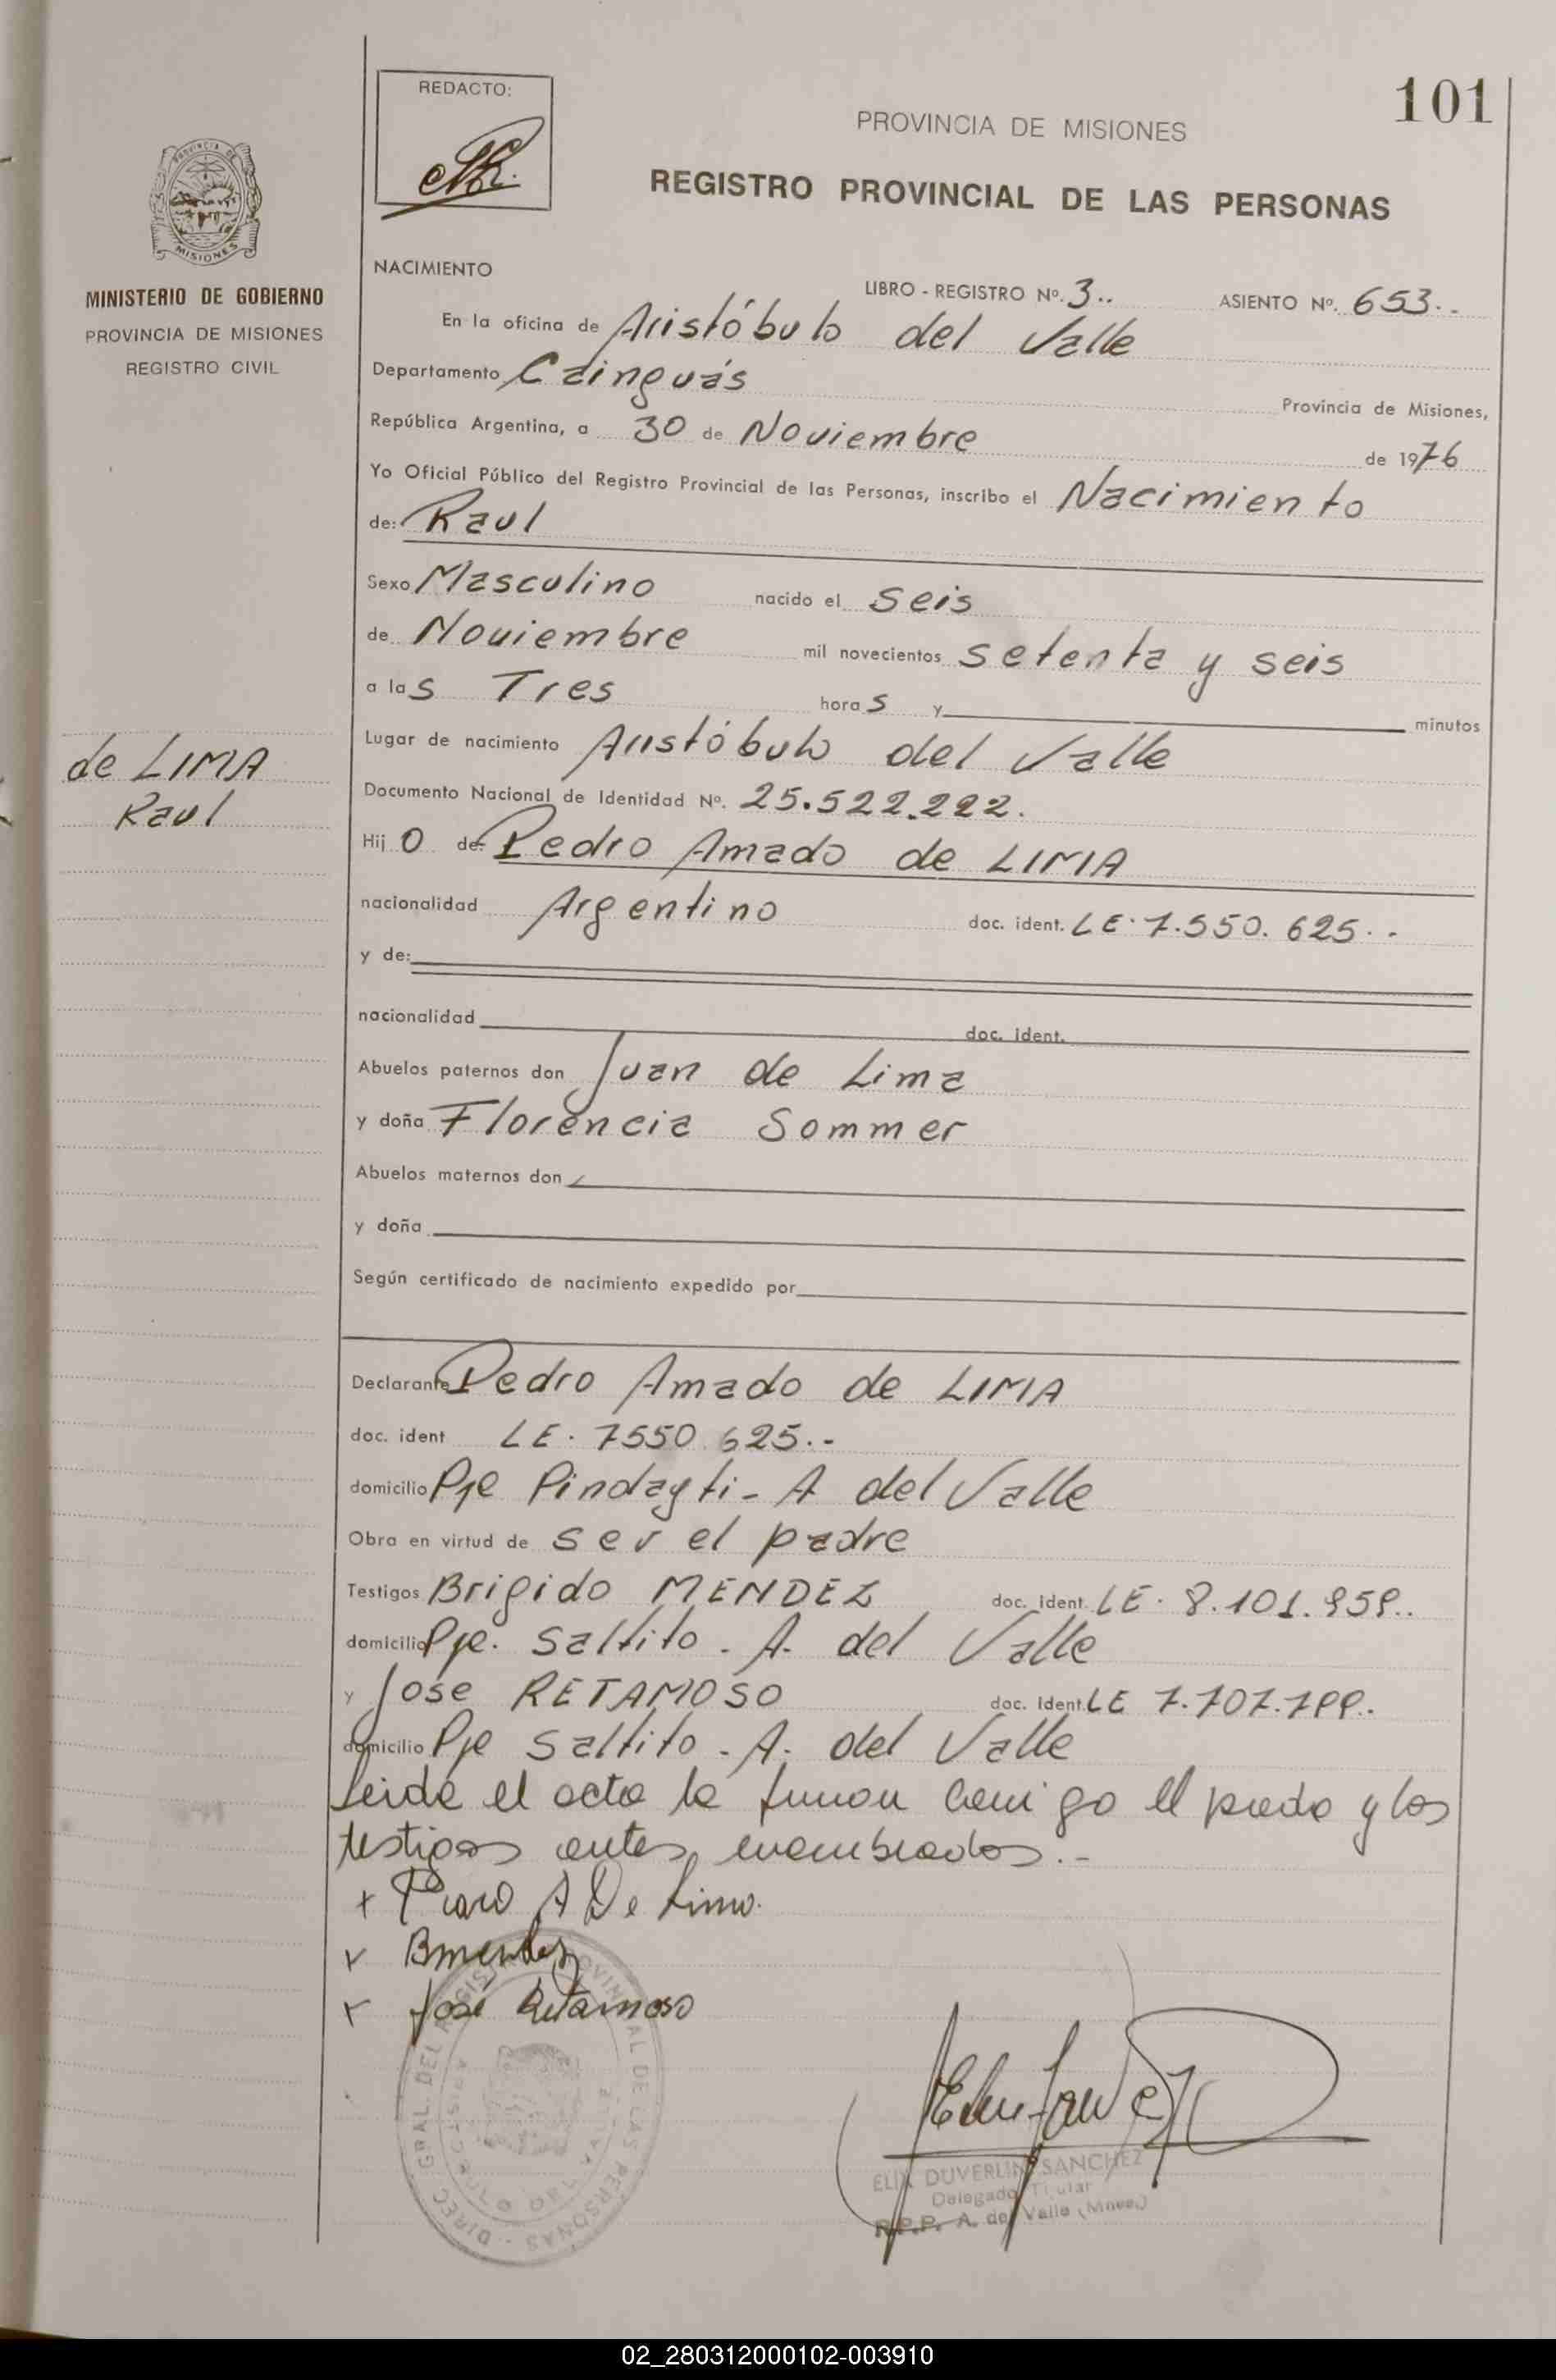 101
REDACTO:
PROVINCIA DE MISIONES
REGISTRO PROVINCIAL DE LAS PERSONAS
PROVINCIA DE
MISIONES
MINISTERIO DE GOBIERNO
PROVINCIA DE MISIONES
REGISTRO CIVIL
NACIMIENTO
LIBRO - REGISTRO Nº. 3.. ASIENTO Nº. 653..
En la oficina de Aristóbulo del Valle
Departamento Cainguás Provincia de Misiones,
República Argentina, a 30 de Noviembre de 1976
Yo Oficial Público del Registro Provincial de las Personas, inscribo el Nacimiento
de: Raul
Sexo Masculino nacido el seis
de Noviembre mil novecientos setenta y seis
a las Tres horas y minutos
Lugar de nacimiento Aristóbulo del Valle
de LIMA
Raul
Documento Nacional de Identidad Nº. 25.522.222.
Hijo de: Pedro Amado de LIMA
nacionalidad Argentino doc. ident. LE. 7.550.625..
y de:
nacionalidad doc. ident.
Abuelos paternos don Juan de Lima
y doña Florencia Sommer
Abuelos maternos don
y doña
Según certificado de nacimiento expedido por
Declarante Pedro Amado de LIMA
doc. ident LE. 7550.625..
domicilio Pje Pindayti - A del Valle
Obra en virtud de ser el padre
Testigos Brigido MENDEZ doc. ident. LE. 8.101.959..
domicilio Pje. Saltito - A. del Valle
y José RETAMOSO doc. ident. LE 7.707.799..
domicilio Pje Saltito - A. del Valle
Leida el acta la firman conmigo el padre y los
testigos antes nombrados.-
x Pedro A De Lima.
x BMendez
x José Retamoso
DIREC. GRAL. DEL REGISTRO PROVINCIAL DE LAS PERSONAS
ARISTOBULO DEL VALLE
ELIX DUVERLIN SANCHEZ
Delegado Titular
R.P.P. A. del Valle (Mnes.)
02_280312000102-003910